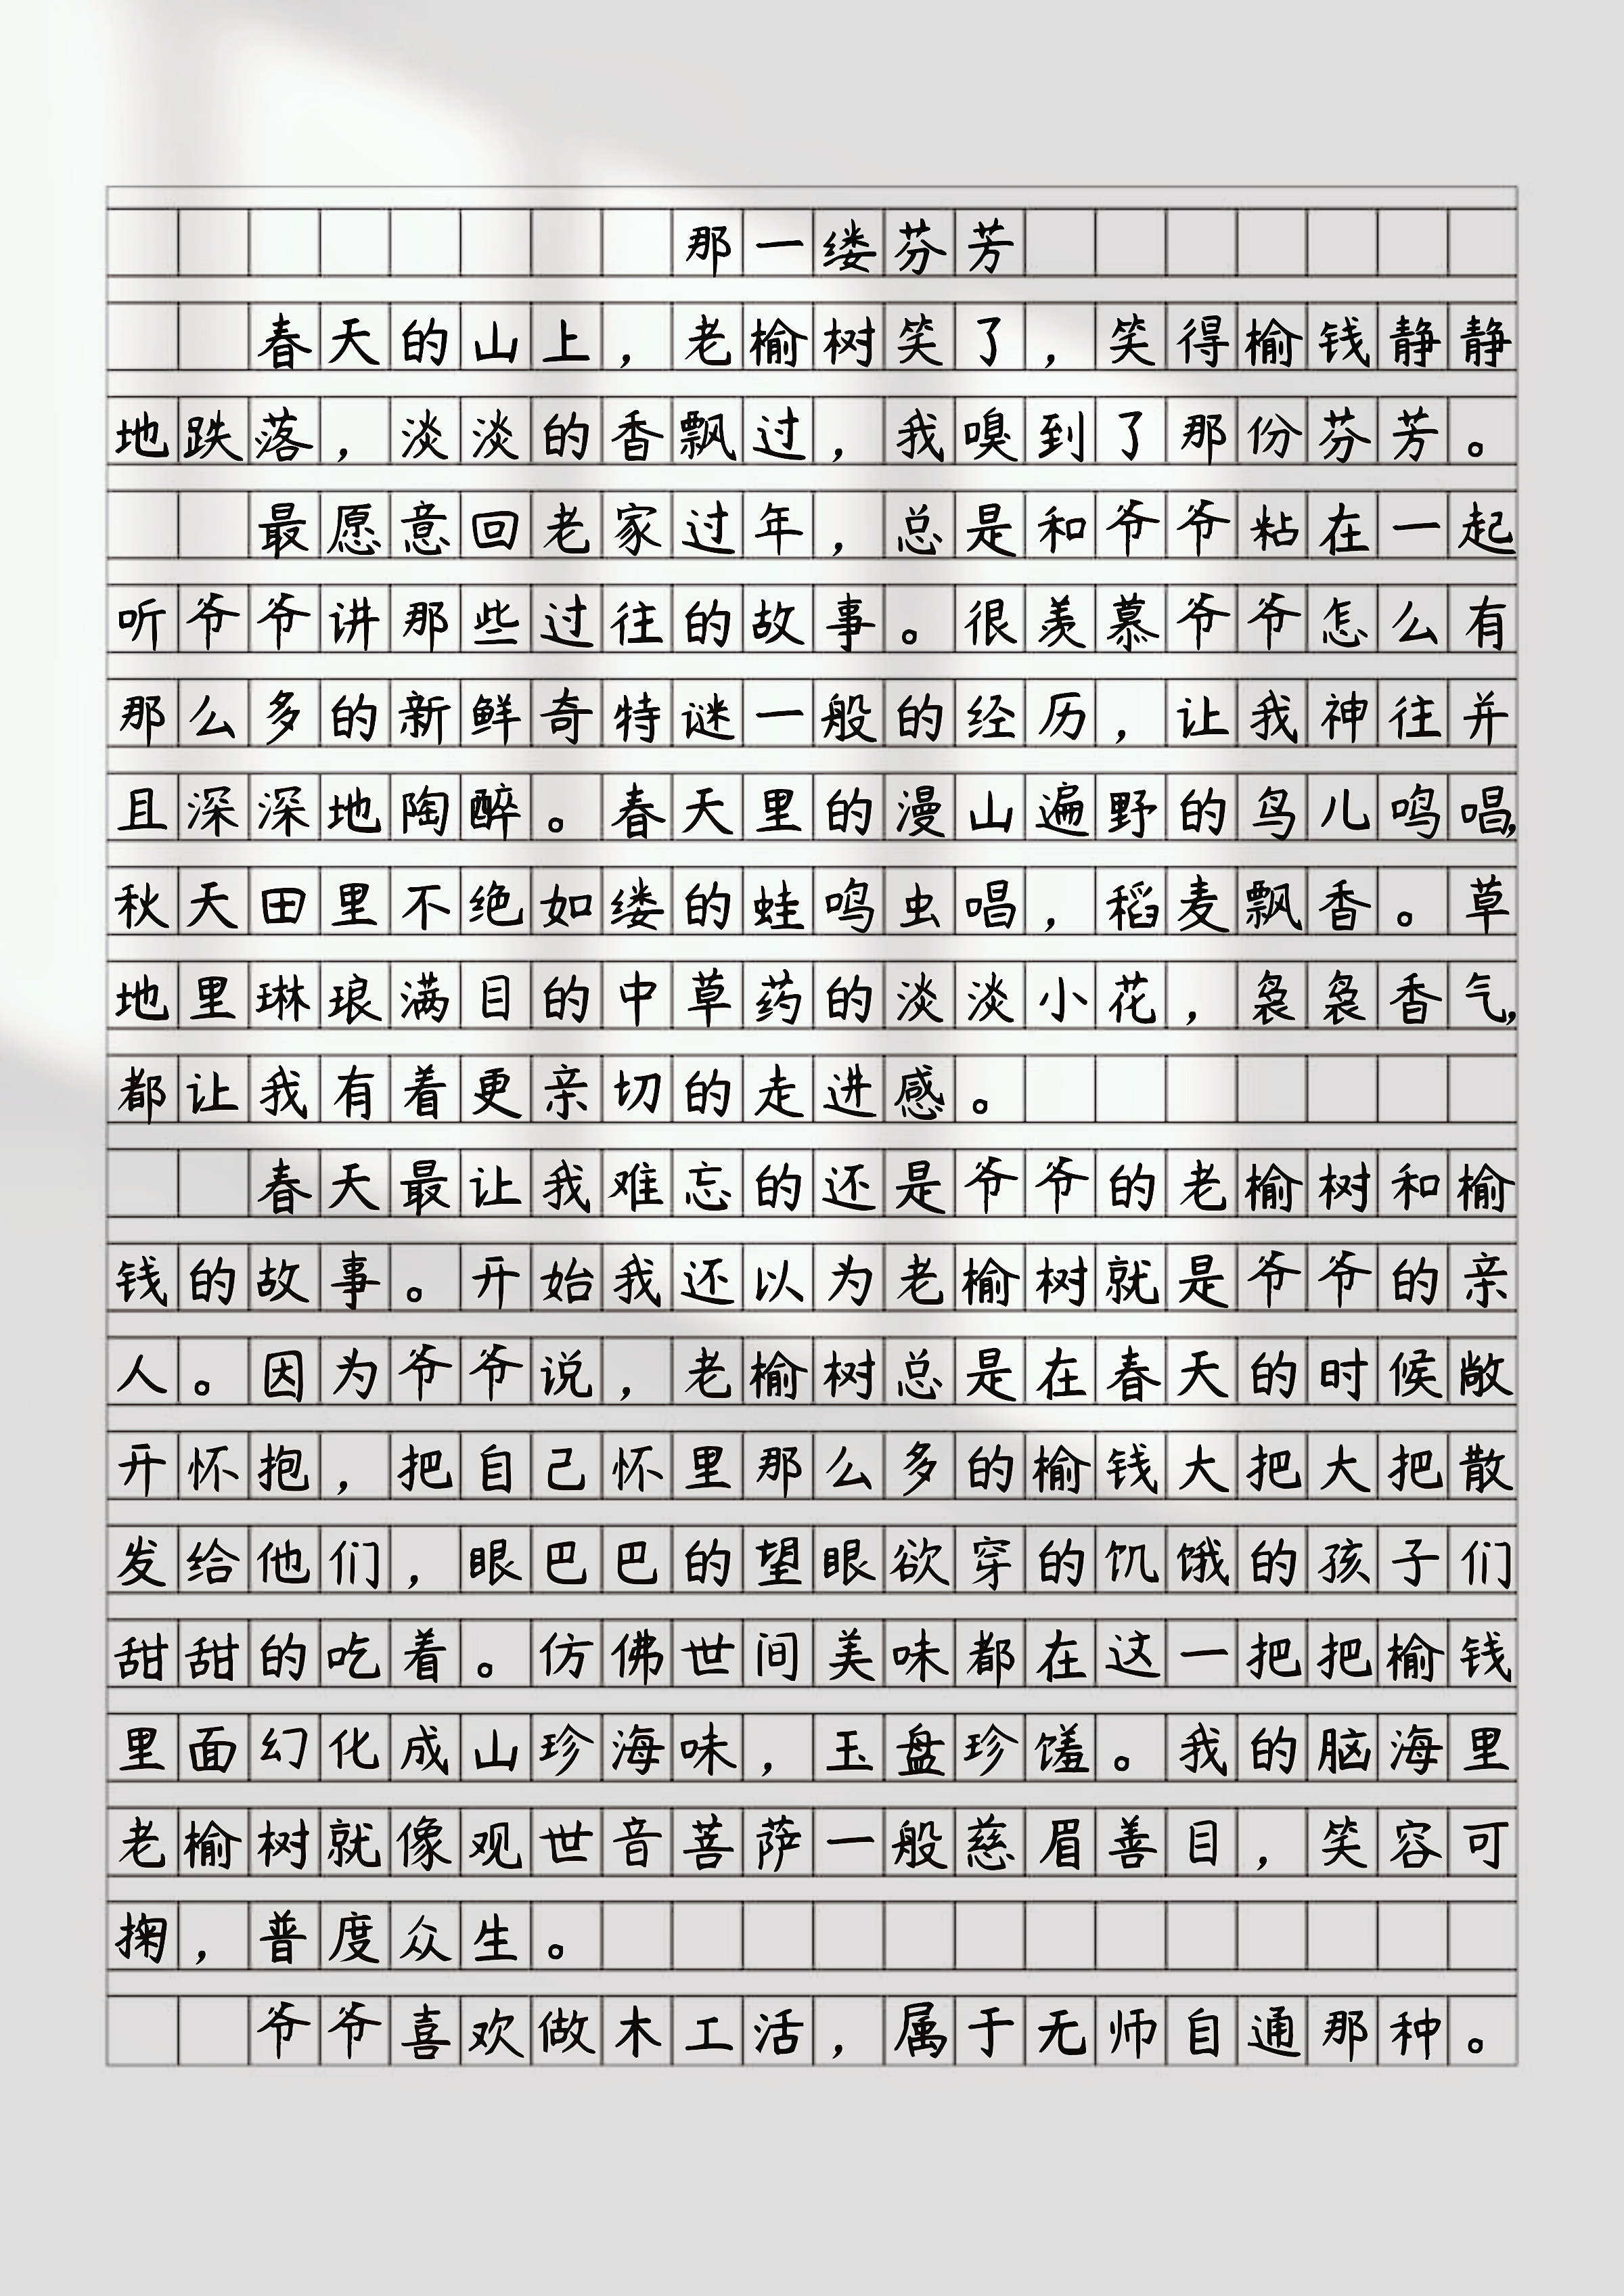 那一缕芬芳
春天的山上，老榆树笑了，笑得榆钱静静
地跌落，淡淡的香飘过，我嗅到了那份芬芳。
最愿意回老家过年，总是和爷爷粘在一起
听爷爷讲那些过往的故事。很羡慕爷爷怎么有
那么多的新鲜奇特谜一般的经历，让我神往并
且深深地陶醉。春天里的漫山遍野的鸟儿鸣唱，
秋天田里不绝如缕的蛙鸣虫唱，稻麦飘香。草
地里琳琅满目的中草药的淡淡小花，袅袅香气，
都让我有着更亲切的走进感。
春天最让我难忘的还是爷爷的老榆树和榆
钱的故事。开始我还以为老榆树就是爷爷的亲
人。因为爷爷说，老榆树总是在春天的时候敞
开怀抱，把自己怀里那么多的榆钱大把大把散
发给他们，眼巴巴的望眼欲穿的饥饿的孩子们
甜甜的吃着。仿佛世间美味都在这一把把榆钱
里面幻化成山珍海味，玉盘珍馐。我的脑海里
老榆树就像观世音菩萨一般慈眉善目，笑容可
掬，普度众生。
爷爷喜欢做木工活，属于无师自通那种。